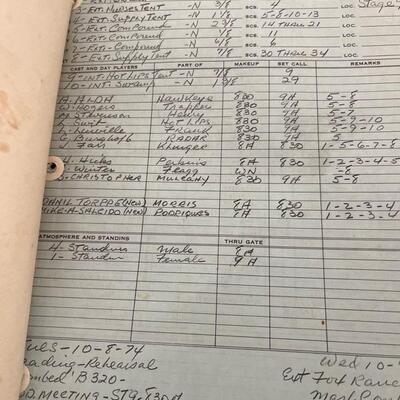 3-Ext. Nurses Tent -N 3/8 SCS. 4 LOC. Stage
4-Ext. Supply Tent -N 1 1/8 SCS. 5-8-10-13 LOC.
5-Ext. Compound -N 2 3/8 SCS. 14 thru 21 LOC.
-Ext. Compound -N 1/8 SCS. 11 LOC.
7-Ext. Compound -N SCS. 6 LOC.
8-Ext. Supply Tent -N SCS. 30 thru 34 LOC.
CAST AND DAY PLAYERS PART OF MAKEUP SET CALL REMARKS
9-Int. Hot Lips Tent -N 7/8 9
10-Int. Swamp -N 29
A. Alda Hawkeye 830 9A 5-8
W. Rogers Trapper 830 9A 5-8
M. Stevenson Henry 830 9A 5-8
L. Swit Hot Lips 800 9A 5-9-10
L. Linville Frank 830 9A 5-9-10
G. Burghoff Radar 830 9A 5-8
J. Farr Klinger 8A 830 1-5-6-7-8
Hicks Perkins 8A 830 1-2-3-4-5
E. Winter Flagg W/N -8
W. Christopher Mulcahy 830 9A 5-8
Danil Torppe (New) Morris 8A 830 1-2-3-4
Mike A. Salcido (New) Rodriques 8A 830 1-2-3-4
ATMOSPHERE AND STANDINS THRU GATE
4-Standins Male 8A
1-Standin Female 9A
Tues-10-8-74
Reading-Rehearsal
B320-
Meeting-Stg. 9
Wed 10-
Ext Fox Ranc